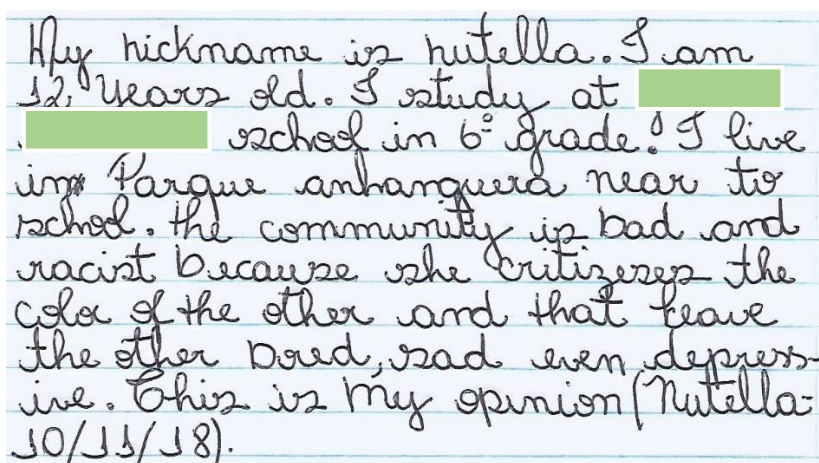 My nickname is nutella. I am
12 years old. I study at
school in 6º grade! I live
in Parque anhanguera near to
school. the community is bad and
racist because she critizeses the
color of the other and that leave
the other bored, sad even depress-
ive. This is my opinion (Nutella-
10/11/18).